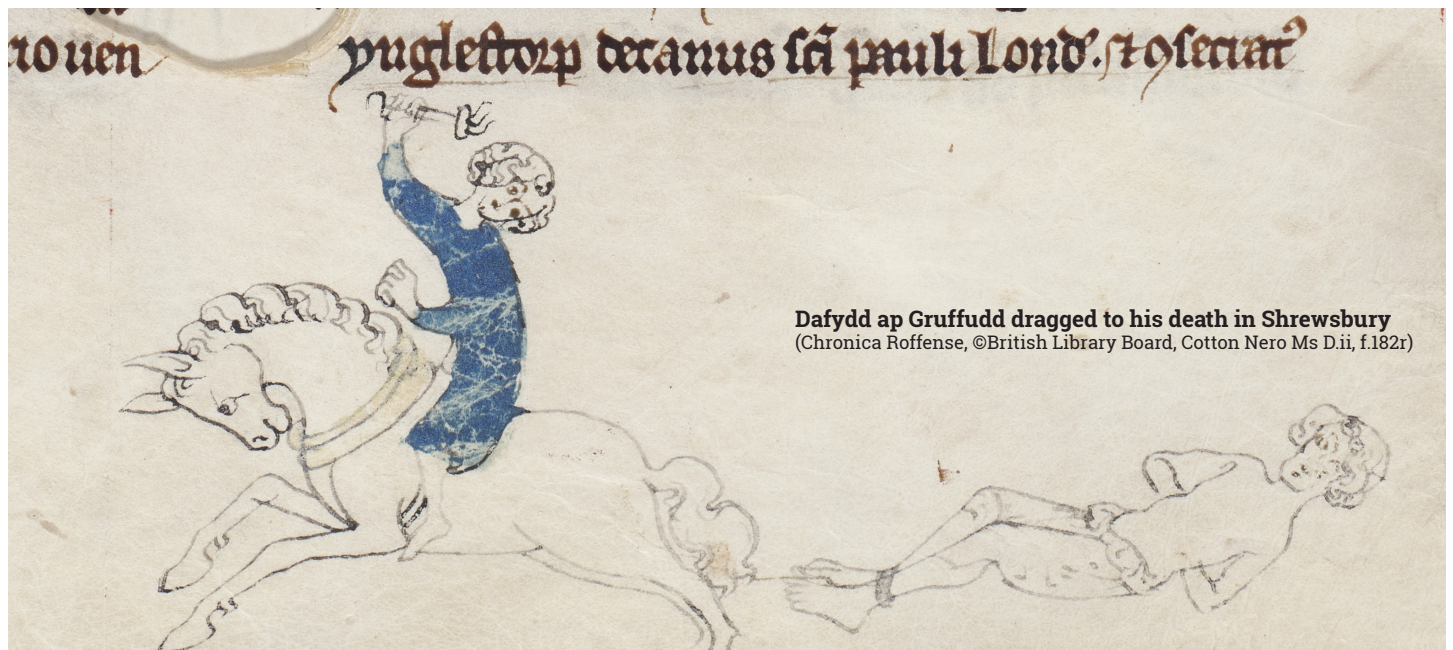 ꝛo uen ynglestorp decanus sc̄i pauli Lond'. ⁊ ꝯsecrat᷒
Dafydd ap Gruffudd dragged to his death in Shrewsbury
(Chronica Roffense, ©British Library Board, Cotton Nero Ms D.ii, f.182r)